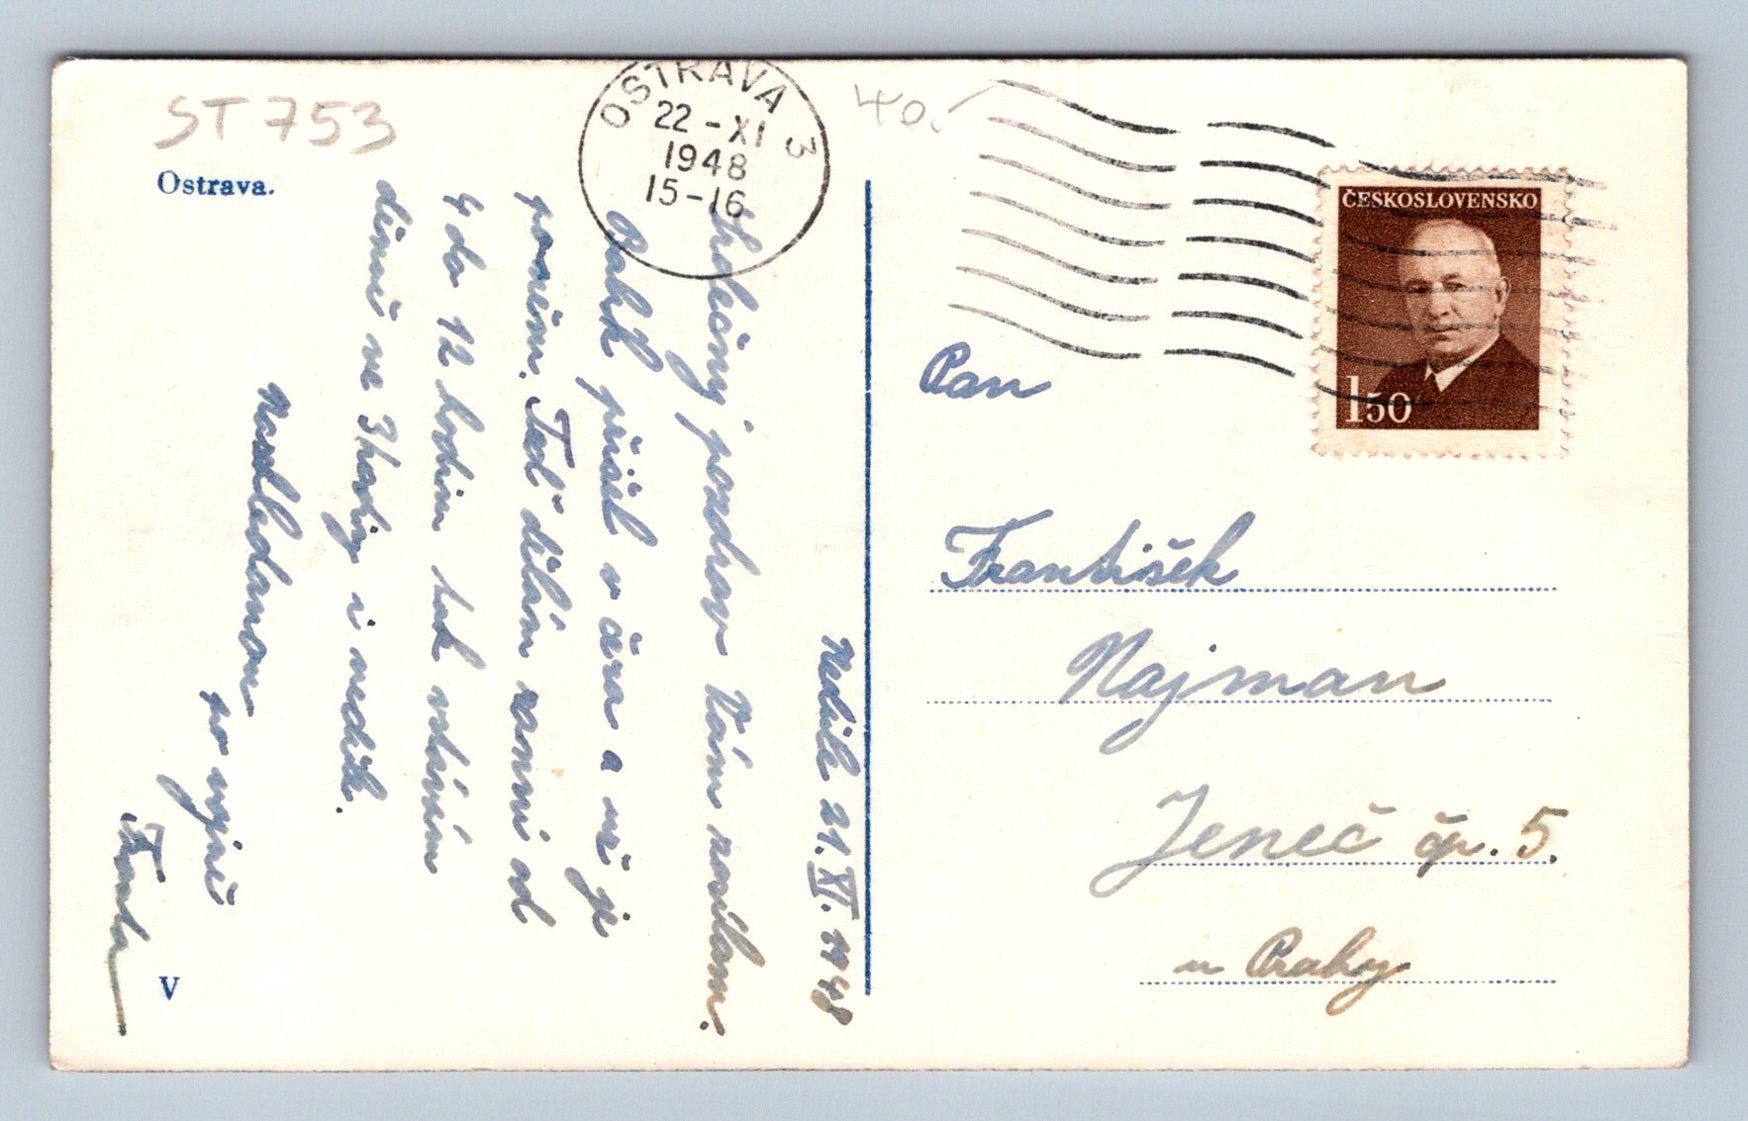 ST 753
Ostrava.
OSTRAVA 3
22-XI
1948
15-16
40.-
ČESKOSLOVENSKO
1 50
Neděle 21. XI. 1948
Srdečný pozdrav Vám posílám.
Balík přišel v čera a už je
Teď dělám ranní od
4 do 12 hodin tak vstávám
denně ve 3 hodiny i neděle.
Nashledanou
po vojně
Pan
František
Najman
Jeneč čp. 5.
u Prahy
V